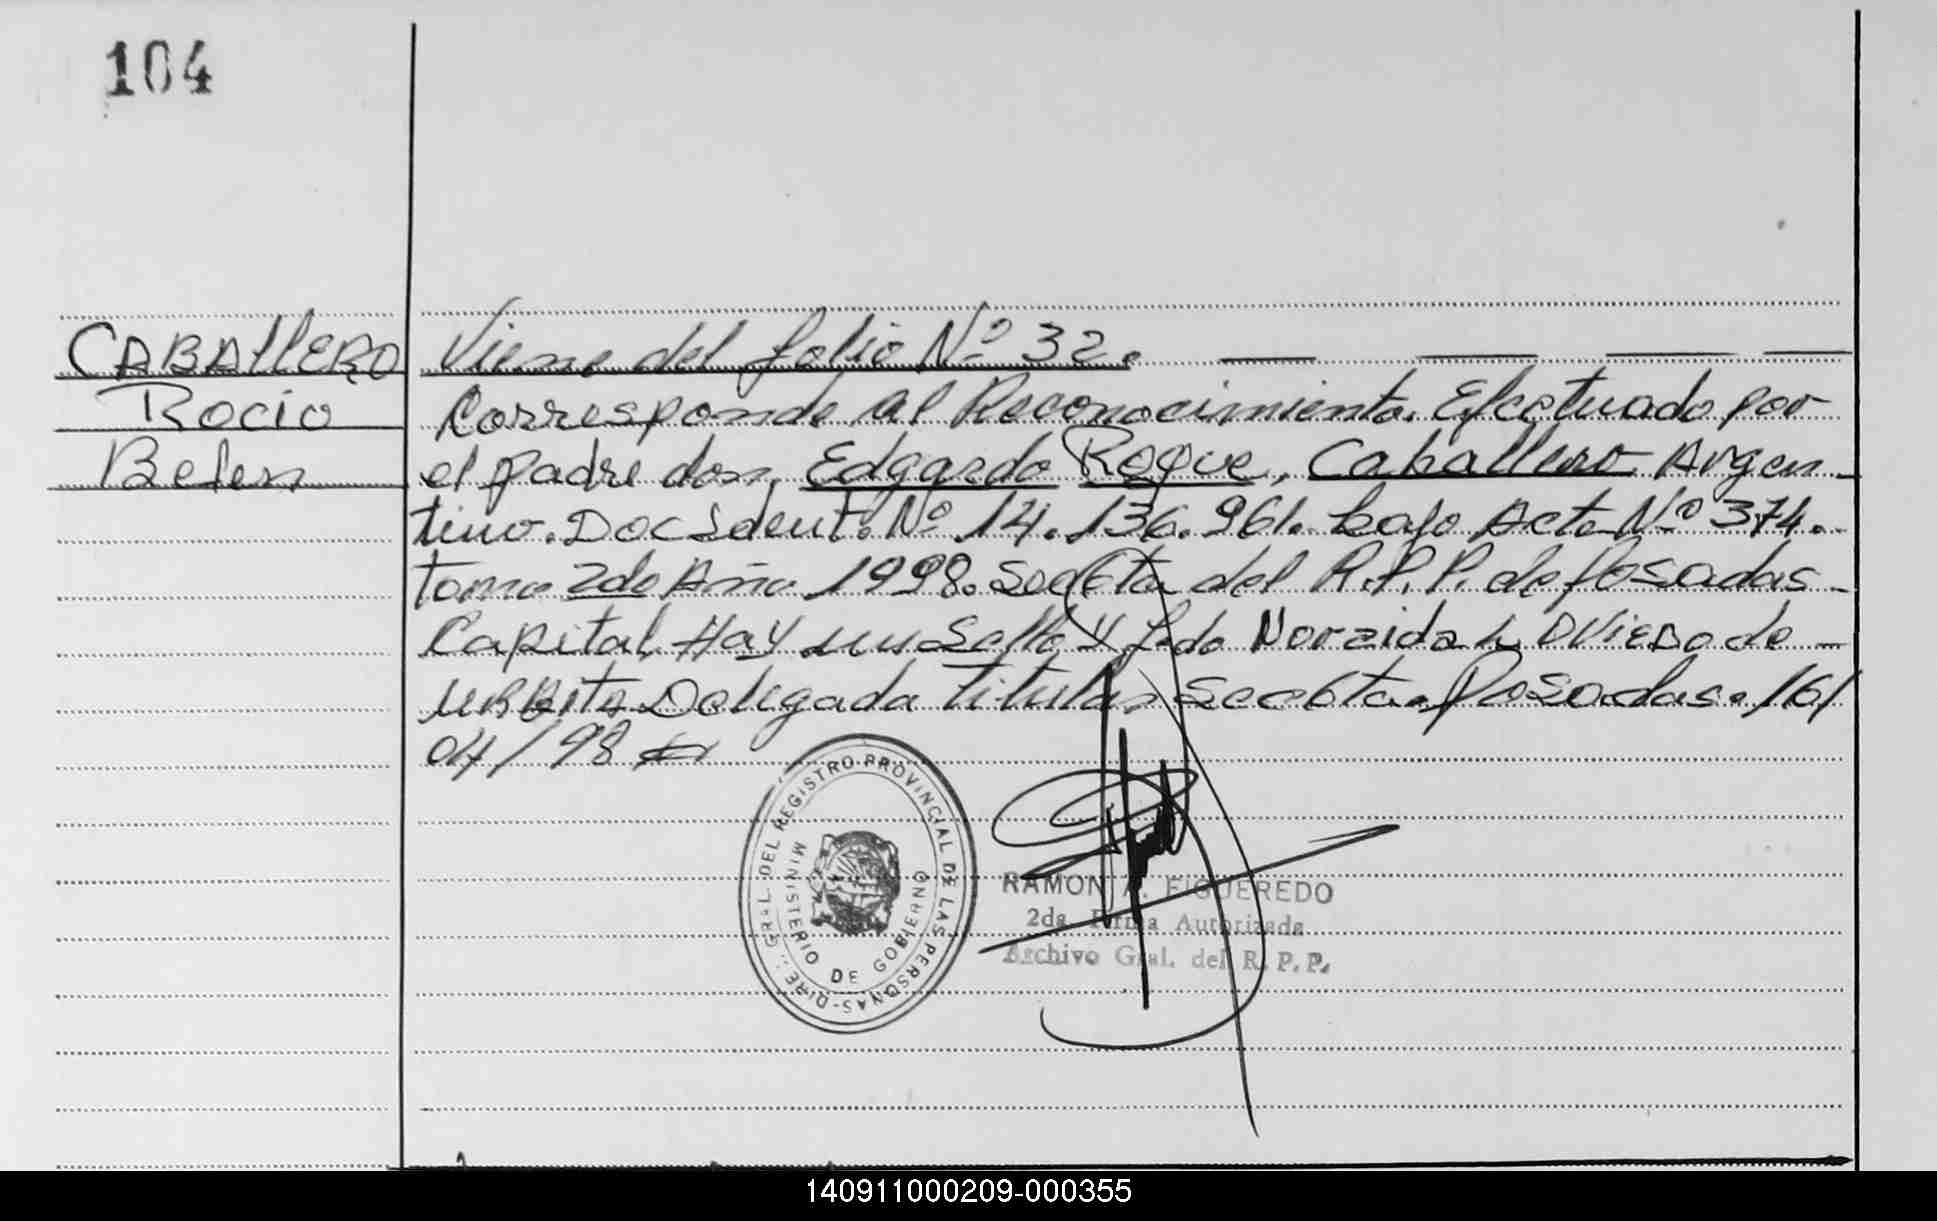 104
CABAllERO
Rocio
Belen
Viene del folio Nº 32.
Corresponde al Reconocimiento. Efectuado por
el padre don, Edgardo Roque, Caballero Argen
tino. Doc Ident. Nº 14.136.961. bajo Acta Nº 374.
tomo 2do Año 1998. Sec 6ta del R.P.P. de Posadas
Capital, Hay un Sello, Y fdo Noraida L OViEDO de
URBitA Delegada titular Sec 6ta. Posadas. 16/
04/98
DIRE.. GRAL. DEL REGISTRO PROVINCIAL DE LAS PERSONAS
MINISTERIO DE GOBIERNO
RAMON A. FIGUEREDO
2da Firma Autorizada
Archivo Gral. del R. P. P.
140911000209-000355